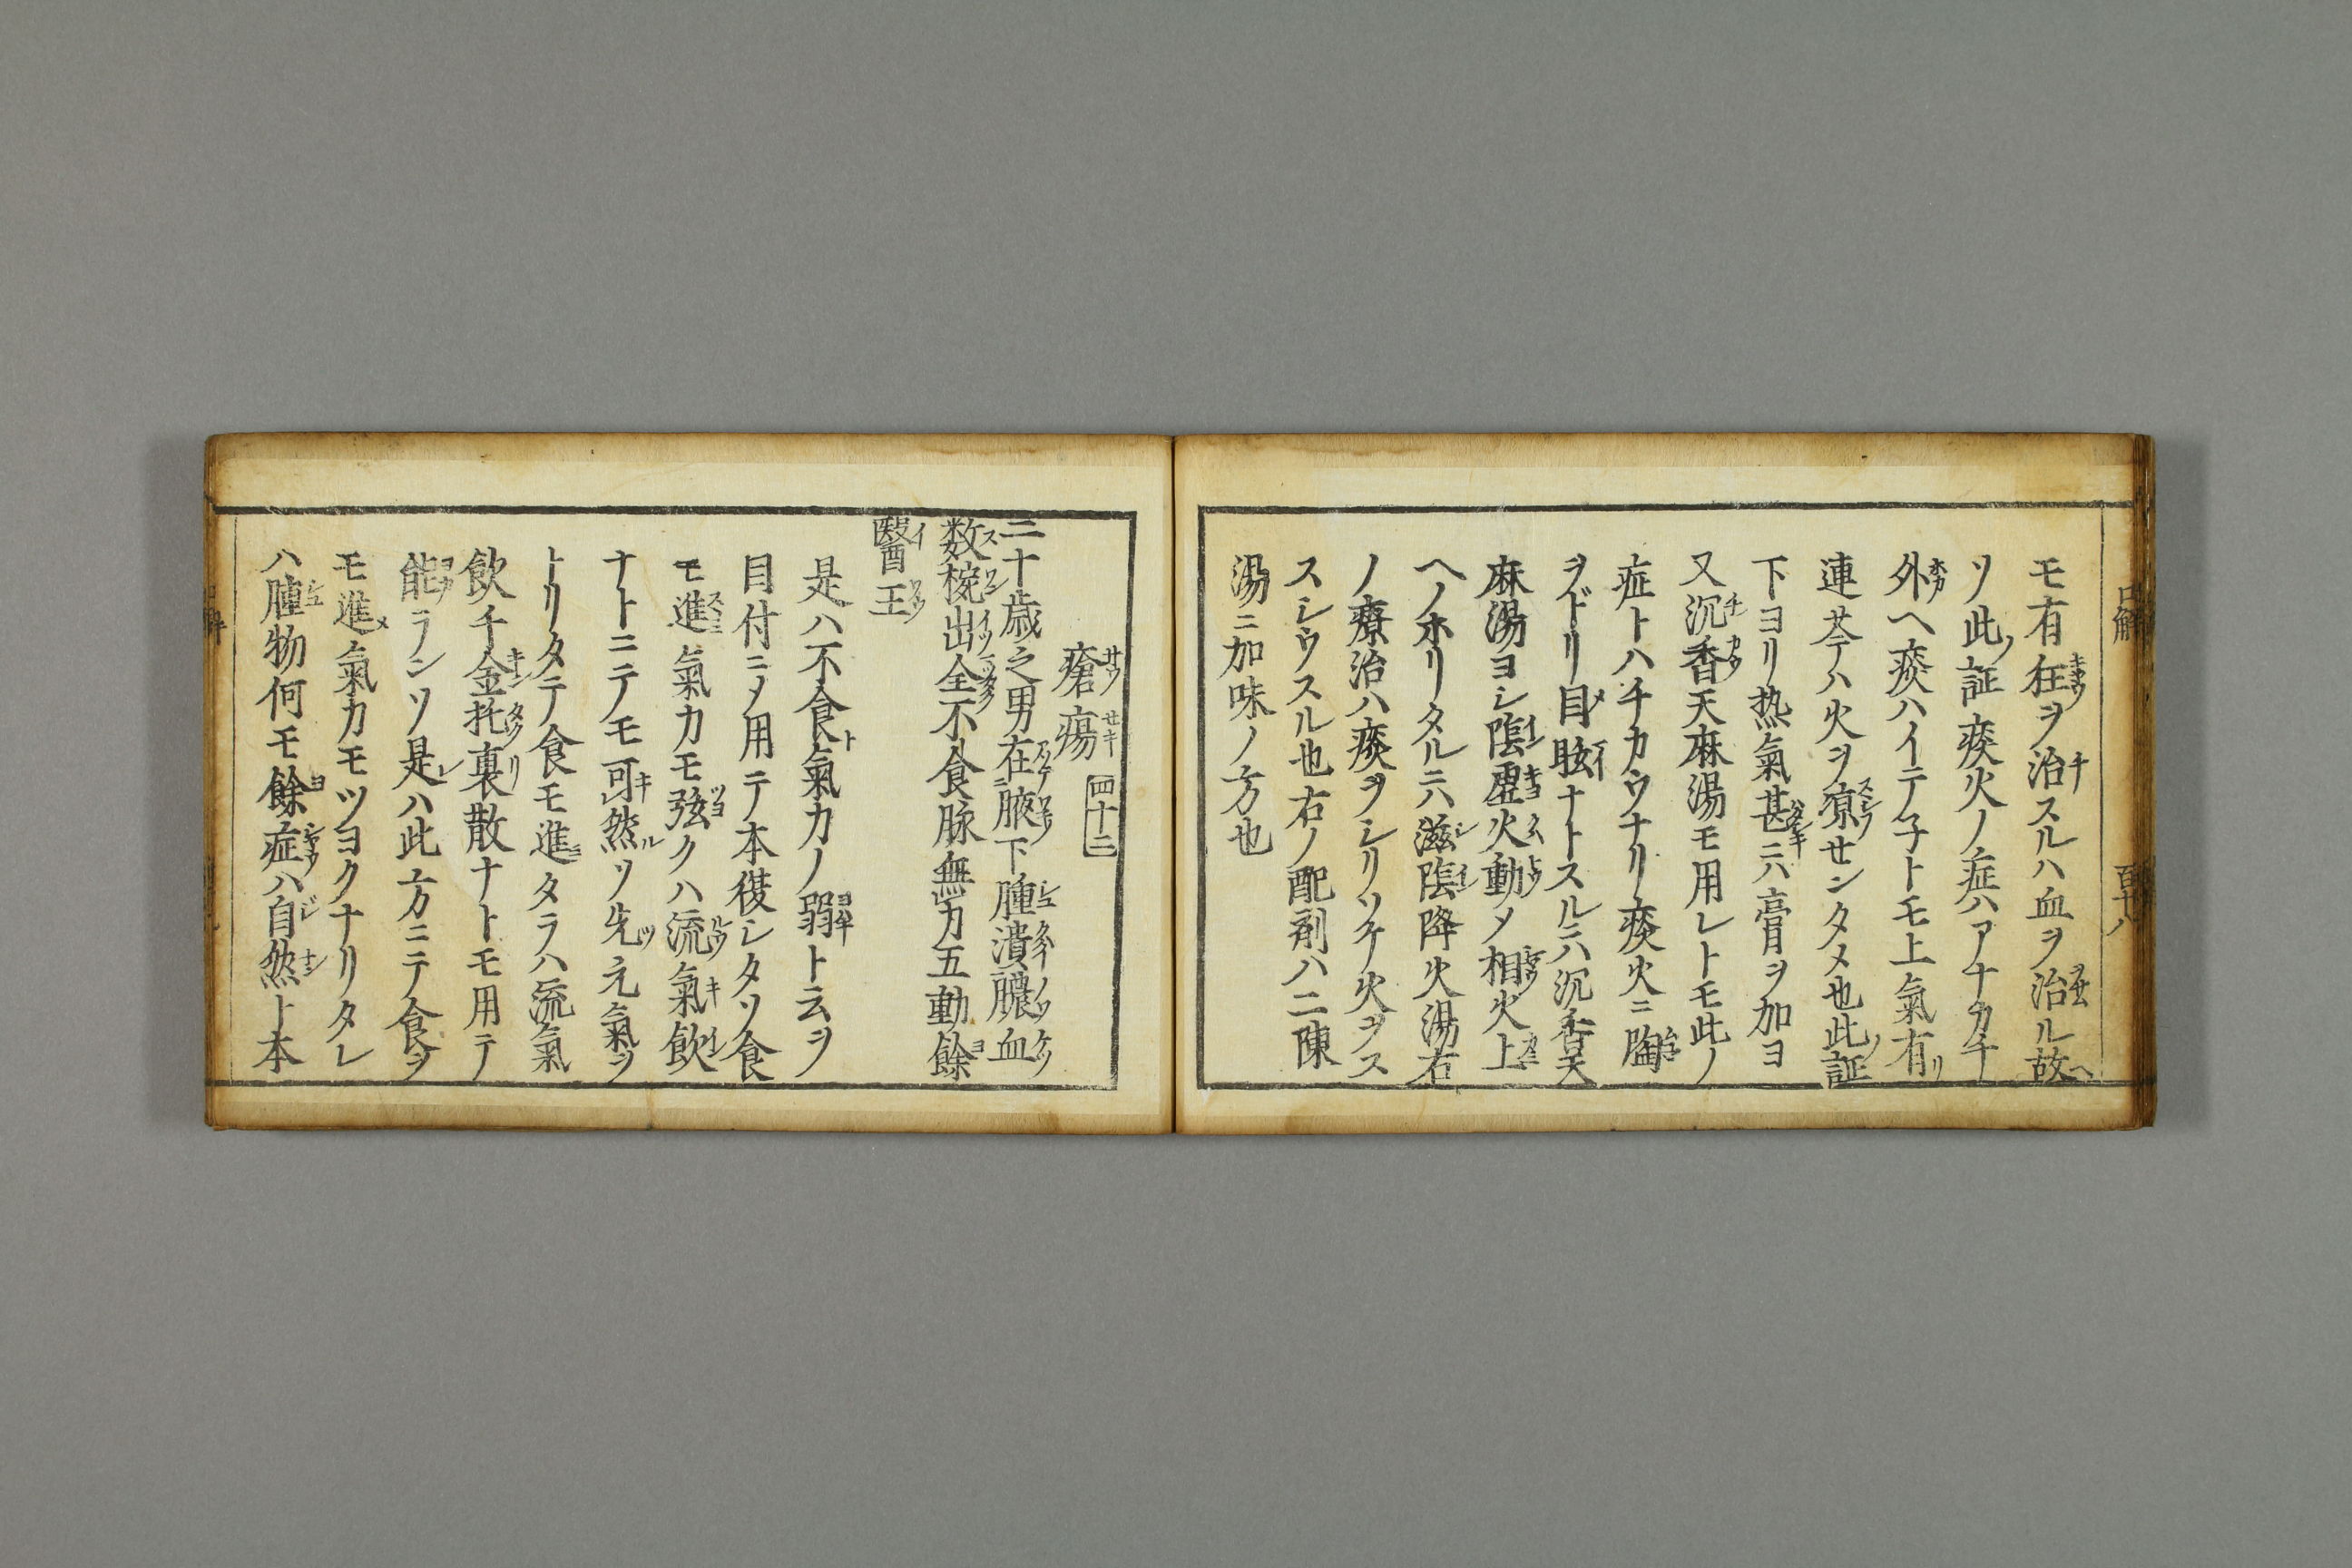 モ有狂ヲ治スルハ血ヲ治ル故
ソ此証痰火ノ症ハアナカチ
外ヘ痰ハイテ子トモ上氣有
連芩ハ火ヲ凉せンタメ也此証
下ヨリ热氣甚ニハ膏ヲ加ヨ
又沉香天麻湯モ用レトモ此ノ
症トハチカウナリ痰火ニ
ヲドリ目眩ナトスルニハ沉香天
麻湯ヨシ陰虚火動メ相火上
ヘノホリタルニハ滋陰降火湯右
ノ療治ハ痰ヲシリソケ火ヲス
スシウスル也右ノ配剤ハ二陳
湯ニ加味ノ方也
瘡瘍 四十二
二十歳之男在腋下腫潰膿血
数椀出全不食脉無力五動餘
醫王
是ハ不食氣力ノ弱ト云ヲ
目付ニメ用テ本復シタソ食
モ進氣力モ弦クハ流氣飲
ナトニテモ可然ソ先元氣ヲ
トリタテ食モ進タラハ流氣
飲千金托裏散ナトモ用テ
能ランソ是ハ此方ニテ食ヲ
モ進氣力モツヨクナリタレ
ハ腫物何モ餘症ハ自然ト本